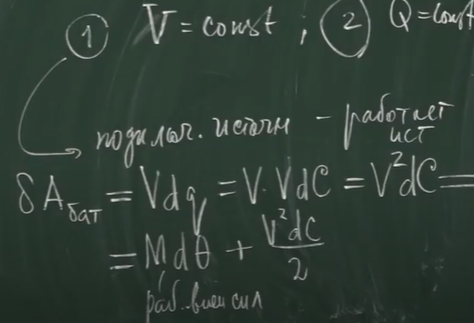 ① V = const ; ② Q = const
подключ. источн - работает
ист
δA бат = Vdq = V·VdC = V²dC =
= Mdθ + V²dC/2
раб. внеш сил